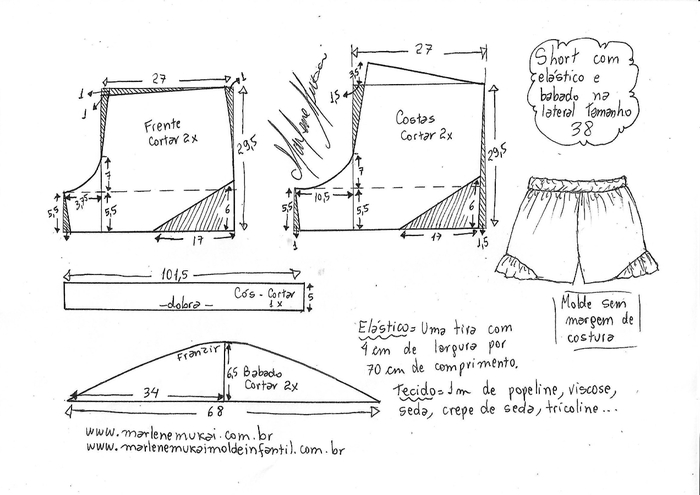 27
1
1
1
Frente
Cortar 2x
29,5
7
5,5
3,75
5,5
6
17
Marlene Mukai
27
3,5
1,5
Costas
Cortar 2x
29,5
7
5,5
10,5
5,5
6
17
1
1,5
Short com
elástico e
babado na
lateral Tamanho
38
101,5
Cós - Cortar
1x
-dobra-
5
Franzir
6,5
Babado
Cortar 2x
34
68
Molde sem
margem de
costura
Elástico = Uma tira com
4 cm de largura por
70 cm de comprimento.
Tecido = 1m de popeline, viscose,
seda, crepe de seda, tricoline...
www.marlenemukai.com.br
www.marlenemukaimoldeinfantil.com.br